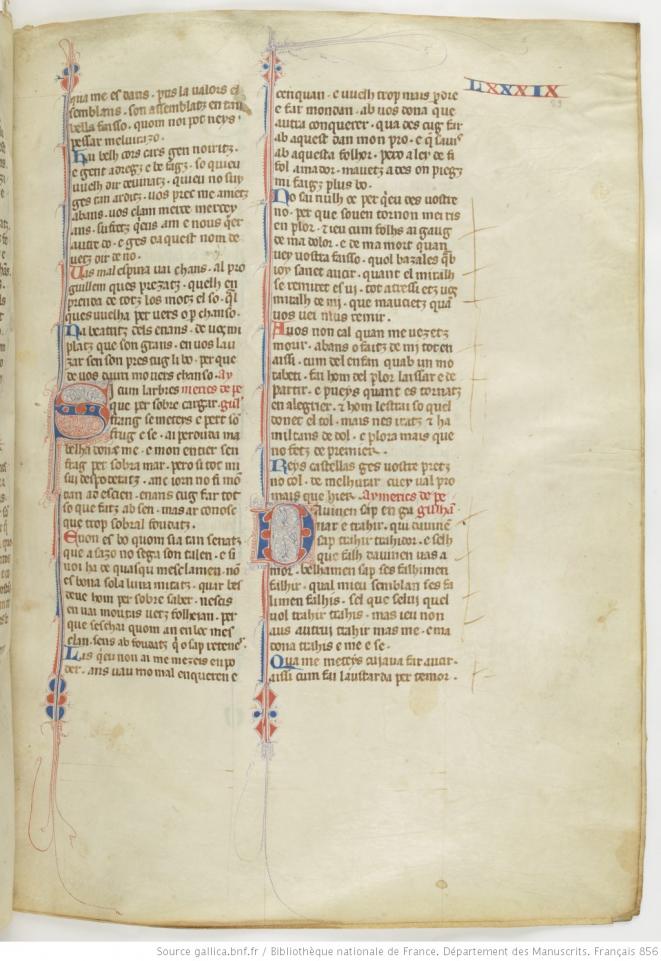 qua me es dans. pus la valors el
semblans. son assemblatz en tan
bella faisso. quom noi pot neys
pessar meluirazo.
hai belh cors cars gen noiritz.
e gent adregz e be fagz. so quieu
vuelh dir deuinatz. quieu no suy
ges tan arditz. uos prec me amietz
abans. uos clam merce mercey
ans. sufretz qieus am e nous qier
autre do. e ges daquest nom de
uetz dir de no.
Uas mal espina uai chans. al pro
guillem ques prezatz. quelh en
prenda de totz los motz el so. ql
ques vuelha per uers o p chanso.
Na beatritz dels enans. de uos mi
platz que son grans. en uos lau
zar sen son pres tug li bo. per que
de uos dauri mo uers chanso. ay
Si cum larbres meries de pe
que per sobre cargar. guil
frang se meteys e pert so
frug e se. ai perduda ma
belha dona e me. e mon entier sen
frag per sobra mar. pero si tot mi
sui despodetatz. anc iorn no fi mo
dan ad escien. enans cug far tot
so que fatz ab sen. mas ar conosc
que trop sobral foudatz.
E non es bo quom sia tan senatz
que a sazo no sega son talen. e si
noi ha de quasqu mesclamen. no
es bona sola lura mitatz. quar bes
deue hom per sobre saber. nescis
en uai moutas uetz folheian. per
que seschai quom an en loc mes
clan. sens ab foudatz qi o sap retener.
Las qieu non ai me mezeis en po
der. ans uau mo mal enqueren e
LXXXIX
89
cerquan. e vuelh trop mais pdre
e far mon dan. ab uos dona que
autra conquerer. qua des cug far
ab aquest dan mon pro. e q sauis
ab aquesta folhor. pero a ley de fi
fol amador. mauetz ades on piegz
mi faigz plus bo.
No sui nulh oc per qieu des uostre
no. per que souen tornon mei ris
en plor. e ieu cum folhs ai gaug
de ma dolor. e de ma mort quan
vey uostra faisso. quol bazalesc qab
ioy sanet aucir. quant el miralh
se remiret es ui. tot atressi etz uos
miralh de mi. que maucietz quan
uos uei nius remir.
A uos non cal quan me uezetz
mourir. abans o faitz de mi tot en
aissi. cum del enfan quab un mo
rabeti. fai hom del plor laissar e de
partir. e pueys quant es tornatz
en alegrier. e hom lestrai so quel
donet el tol. mais nes iratz e fa
mil tans de dol. e plora mais que
no fetz de premier.
Reys castellas ges uostre pretz
no col. de melhurar cuey ual pro
mais que hier. aymerics de pe
Dauinen sap enga guilha
nar e trahir. qui dauine
sap trahir trahidor. e selh
que falh dauinen uas a
mor. belhamen sap ses falhimen
falhir. qual mieu semblan ses fa
limen falhis. sel que seluy quel
vol trahir trahis. mas ieu non
aus autrui trahir mas me. e ma
dona trahis e me e se.
Qua me meteys cuiaua far aucir.
aissi cum fai laustarda per temor.
Source gallica.bnf.fr / Bibliothèque nationale de France. Département des Manuscrits. Français 856